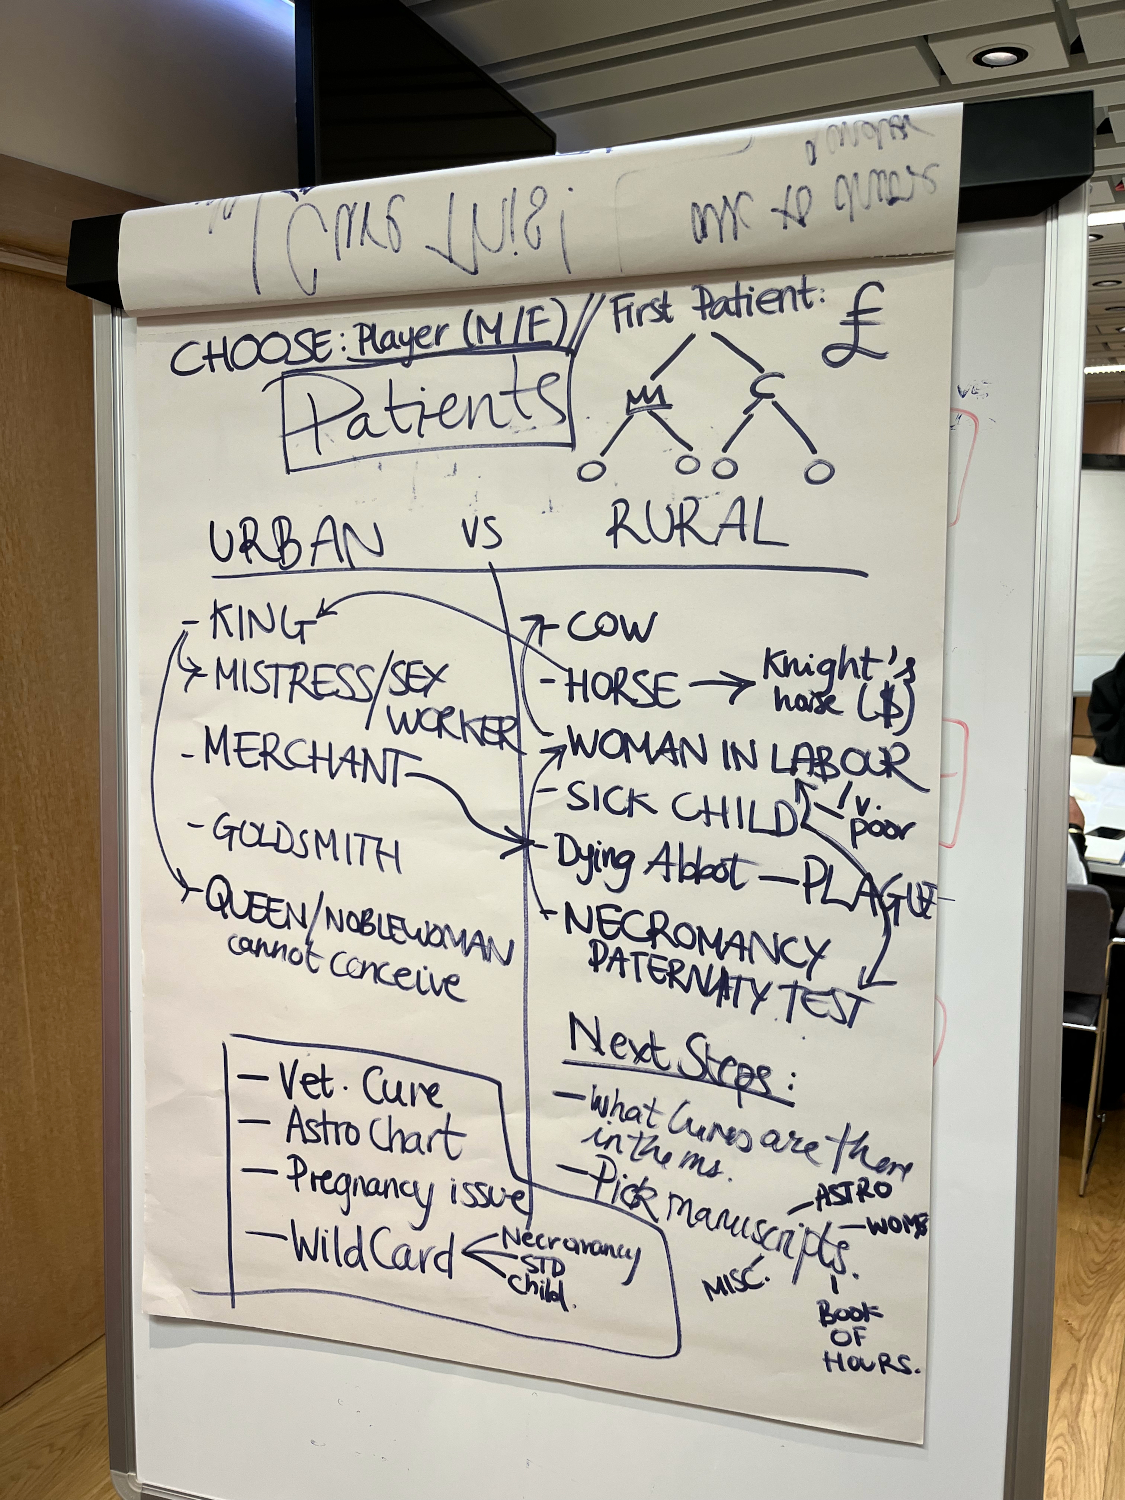 CHOOSE: Player (M/F) // First Patient: £
Patients
C
URBAN VS RURAL
- KING
- MISTRESS/SEX
WORKER
- MERCHANT
- GOLDSMITH
- QUEEN/NOBLEWOMAN
cannot conceive
- COW
- HORSE → Knight's
horse ($)
- WOMAN IN LABOUR
- SICK CHILD
v.
poor
- Dying Abbot — PLAGUE
- NECROMANCY
PATERNATY TEST
- Vet. Cure
- Astro Chart
- Pregnancy issue
- Wild Card
Necromancy
STD
Child.
Next Steps:
- What Cures are there
in the ms.
- Pick manuscripts.
ASTRO
WOMB
MISC.
BOOK
OF
HOURS.